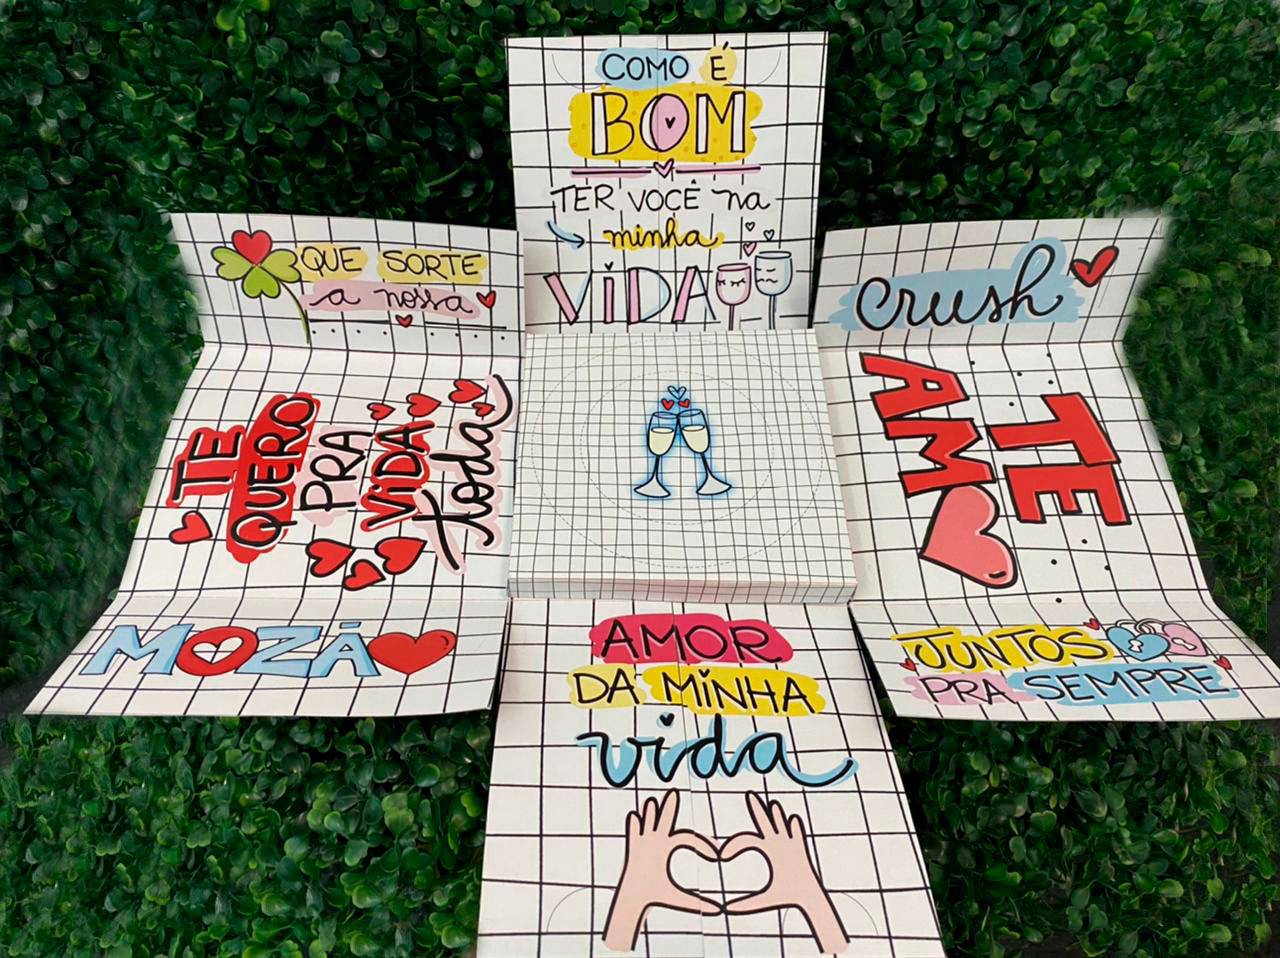 COMO É
BOM
TER VOCÊ na
minha
VIDA
QUE SORTE
a nossa
crush
TE
QUERO
PRA
VIDA
toda
TE
AMO
MOZÃO
JUNTOS
PRA SEMPRE
AMOR
DA MINHA
vida